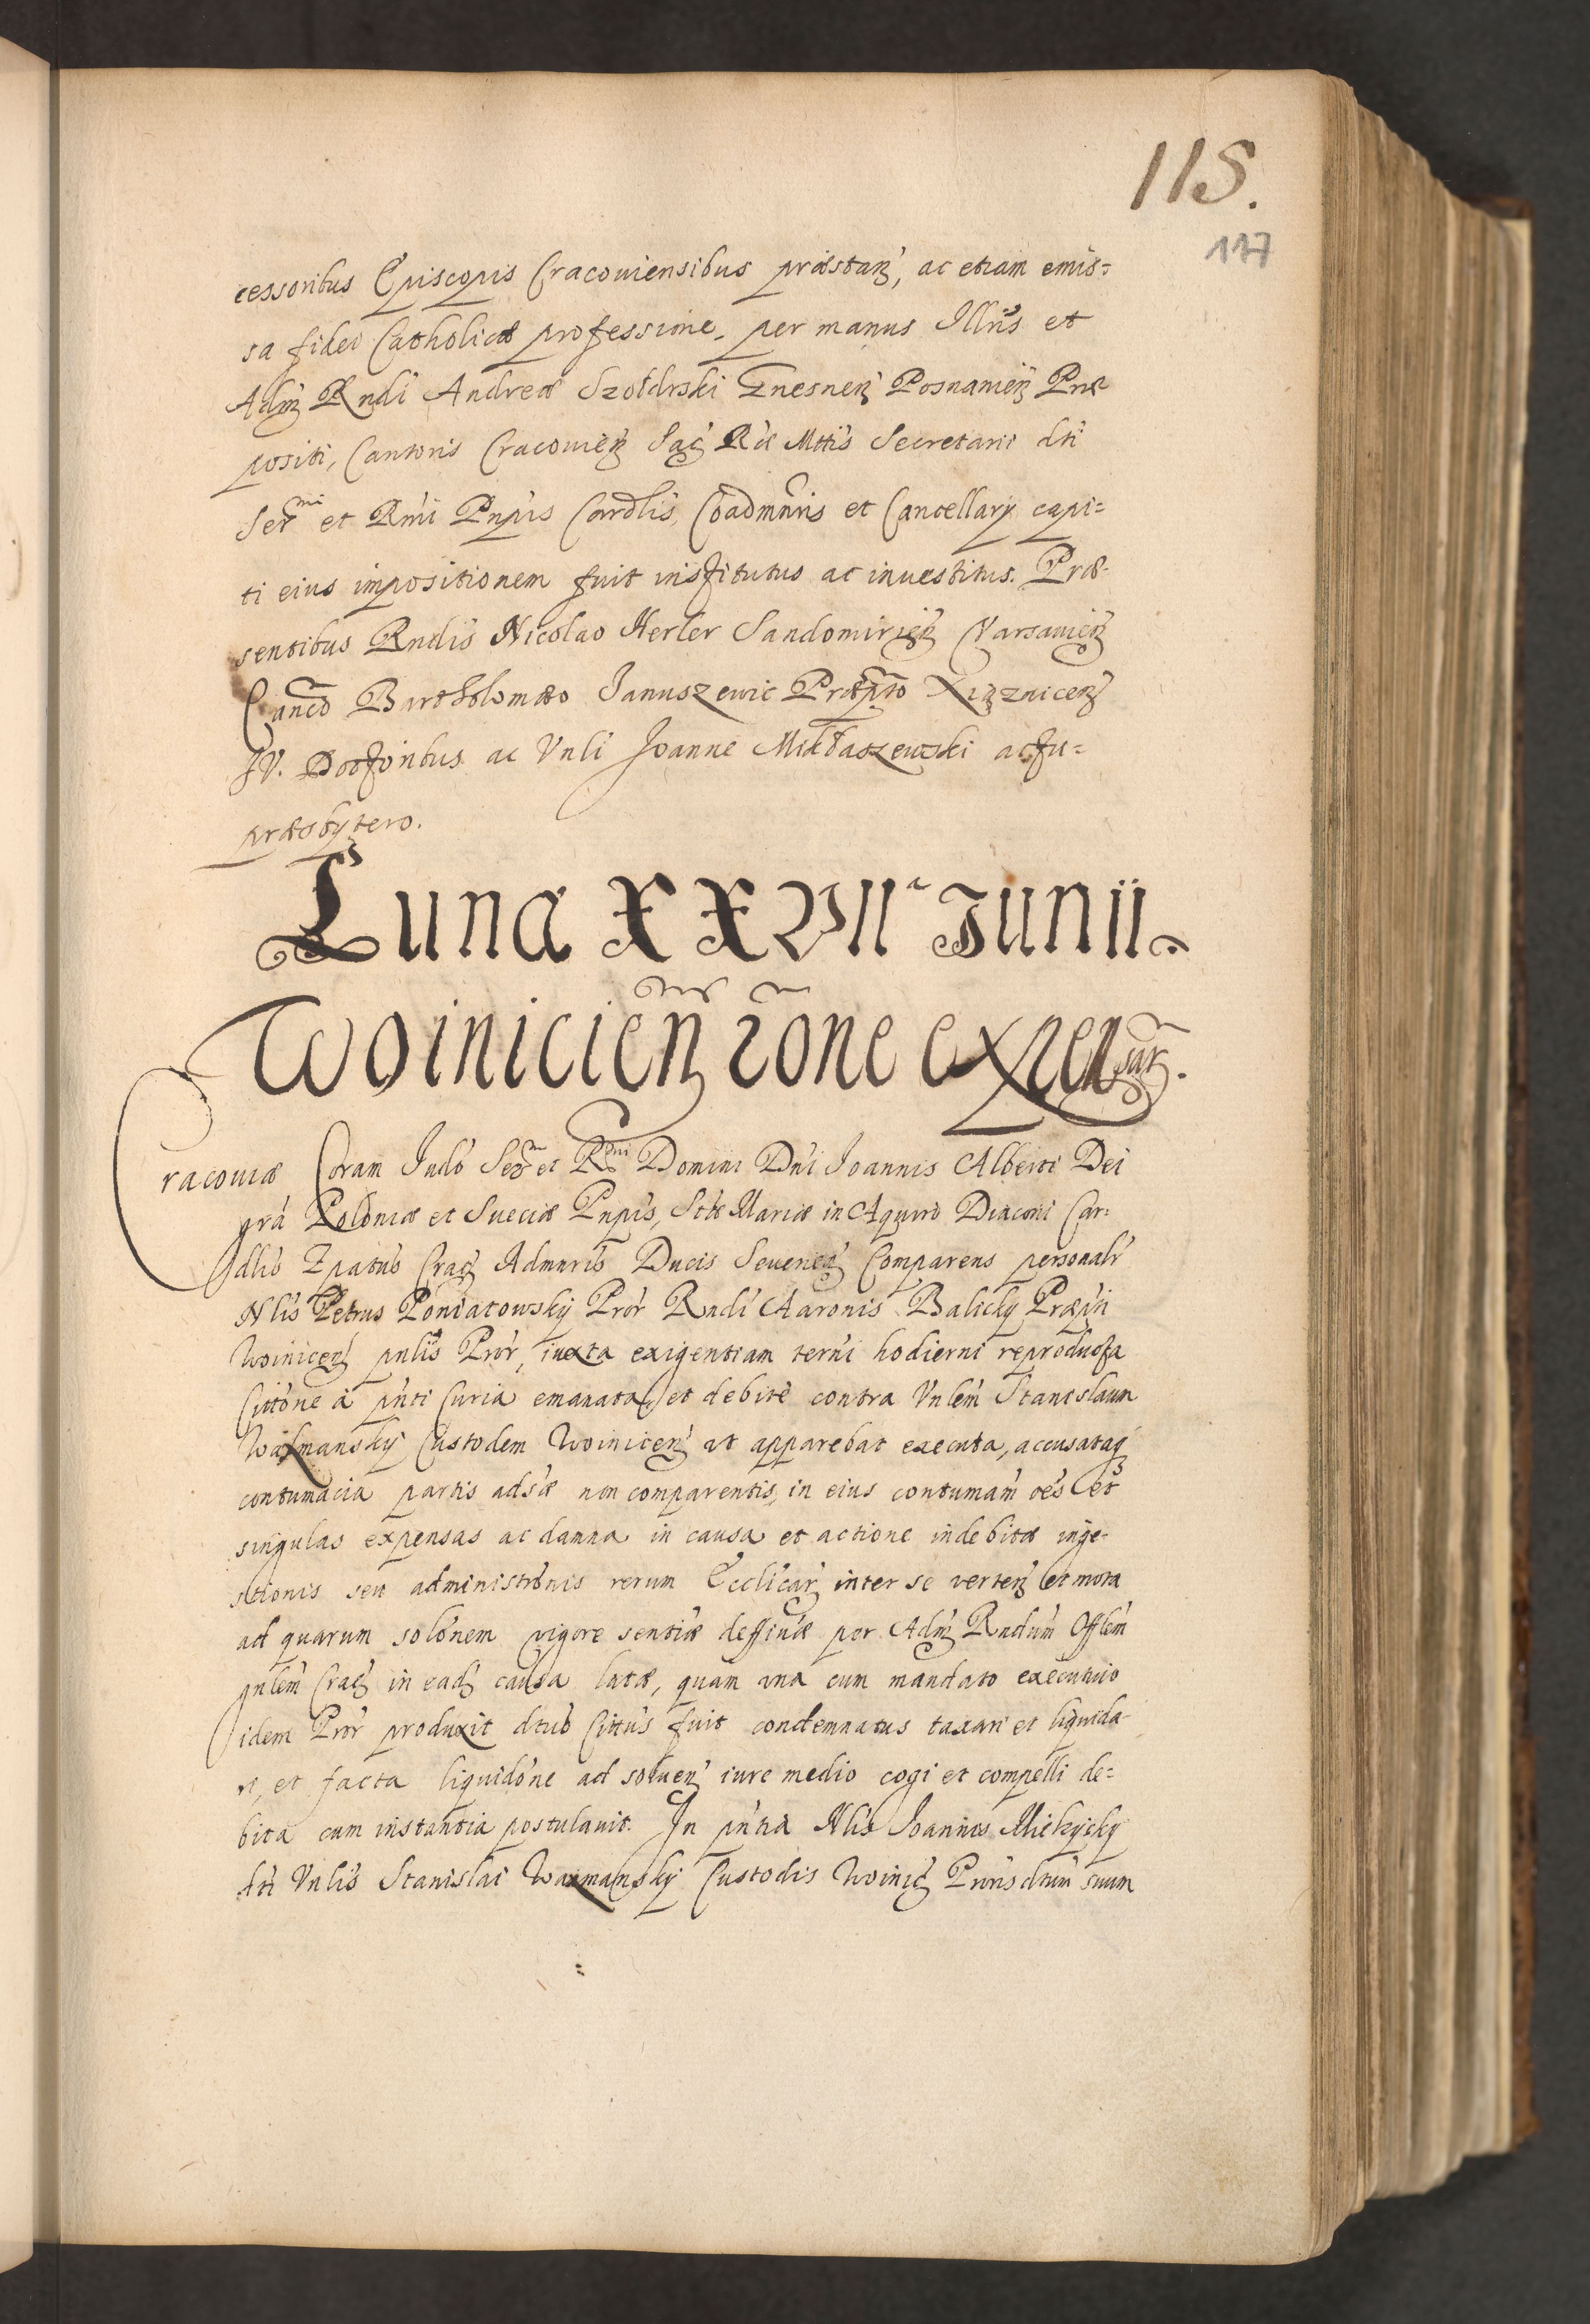 115.
117
cessoribus Episcopis Cracouiensibus præstan̄, ac etiam emis=
sa fidei Catholicæ professione, per manus Illris et
Adm̄ Rndi Andreæ Szołdrski Gnesnen̄ Posnanien̄ Præ
positi, Cantoris Cracouien̄ Sac̄ Ræ Mttis Secretarii dti
Ser̄mi et Rmi Pnpis Cardlis, Coadmnris et Cancellarij capi=
ti eius impositionem fuit institutus ac inuestitus. Præ-
sentibus Rndis Nicolao Herler Sandomirien̄ Varsauien̄
Canco Bartholomæo Januszewic Præpto Xiąznicen̄
JV. Doctoribus ac Vnli Joanne Mikłaszewski actu=
præsbytero.
Lunæ XXVIIa Junii.
Woinicien̄ rōne expensar̄.
Cracouiæ Coram Judo Ser̄m et Rmi Domini Dni Joannis Alberti Dei
gra Poloniæ et Sueciæ Pnpis, Stæ Mariæ in Aquiro Diaconi Car=
dlis Epatus Crac̄ Admnris Ducis Seuerien̄ Comparens personalr
Nlis Petrus Poniatowskij Pror Rndi Aaronis Balickij Præpti
Woinicen̄ pnlis Pror, iuxta exigentiam termi hodierni reproducta
Cittone à pnti Curia emanata, et debitè contra Vnlem Stanislaum
Waxmanskij Custodem Woinicen̄ ut apparebat executa, accusataq̄
contumacia partis adsæ non comparentis, in eius contumam oes et
singulas expensas ac damna in causa et actione indebitæ inge-
stionis seu administronis rerum Ecclicar̄ inter se verten̄ et mota
ad quarum solonem vigore sentiæ deffinæ per Adm̄ Rndum Offlem
gnlem Crac̄ in ead̄ causa latæ, quam una cum mandato executiuo
idem Pror produxit dtus Cittus fuit condemnatus taxari et liquida-
ri, et facta liquidone ad soluen̄ iure medio cogi et compelli de=
bita cum instantia postulauit. In pntia Nlis Joannes Miekickij
dti Vnlis Stanislai Waxmanskij Custodis Woinic̄ Proris dtum suum